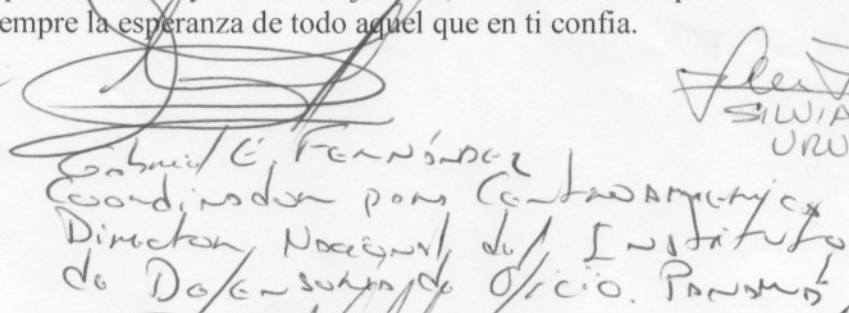 empre la esperanza de todo aquel que en ti confia.
SILVIA
URU
Gabriel E. FERNÁNDEZ
Coordinador para Centroamerica
Director Nacional del Instituto
de Defensoría de Oficio. Panamá